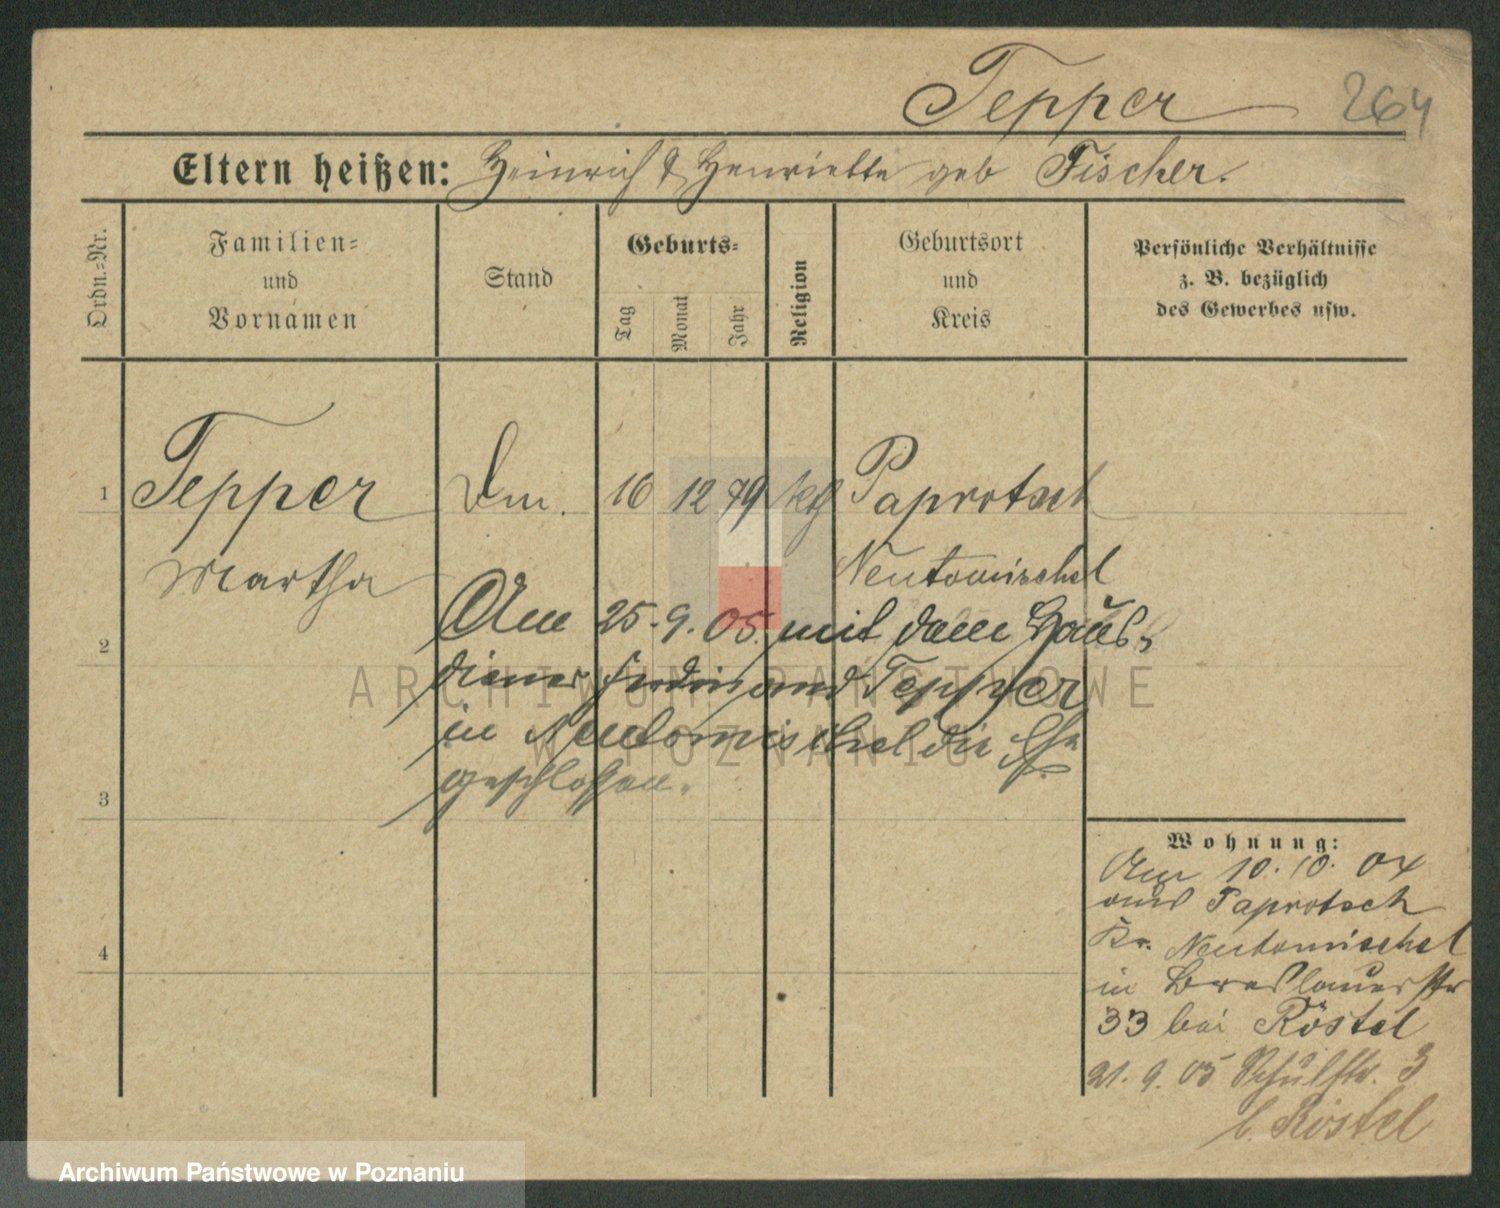 Tepper 264
Eltern heißen: Heinrich & Henriette geb Fischer.
Ordn.=Nr.
Familien=
und
Vornamen
Stand
Geburts=
Tag
Monat
Jahr
Religion
Geburtsort
und
Kreis
Persönliche Verhältnisse
z. B. bezüglich
des Gewerbes usw.
1 Tepper 16 12 79 Paprotsch
Martha Neutomischel
2 Am 25.9.05. mit dem Haus=
diener Ferdinand Tepper
in Neutomischel die Ehe
3 geschlossen.
4
Wohnung:
Am 10.10.04
aus Paprotsch
Kr. Neutomischel
in Breslauerstr
33 bei Röstel
21.9.05 Schulstr. 3
b. Röstel
ARCHIWUM PAŃSTWOWE
W POZNANIU
Archiwum Państwowe w Poznaniu